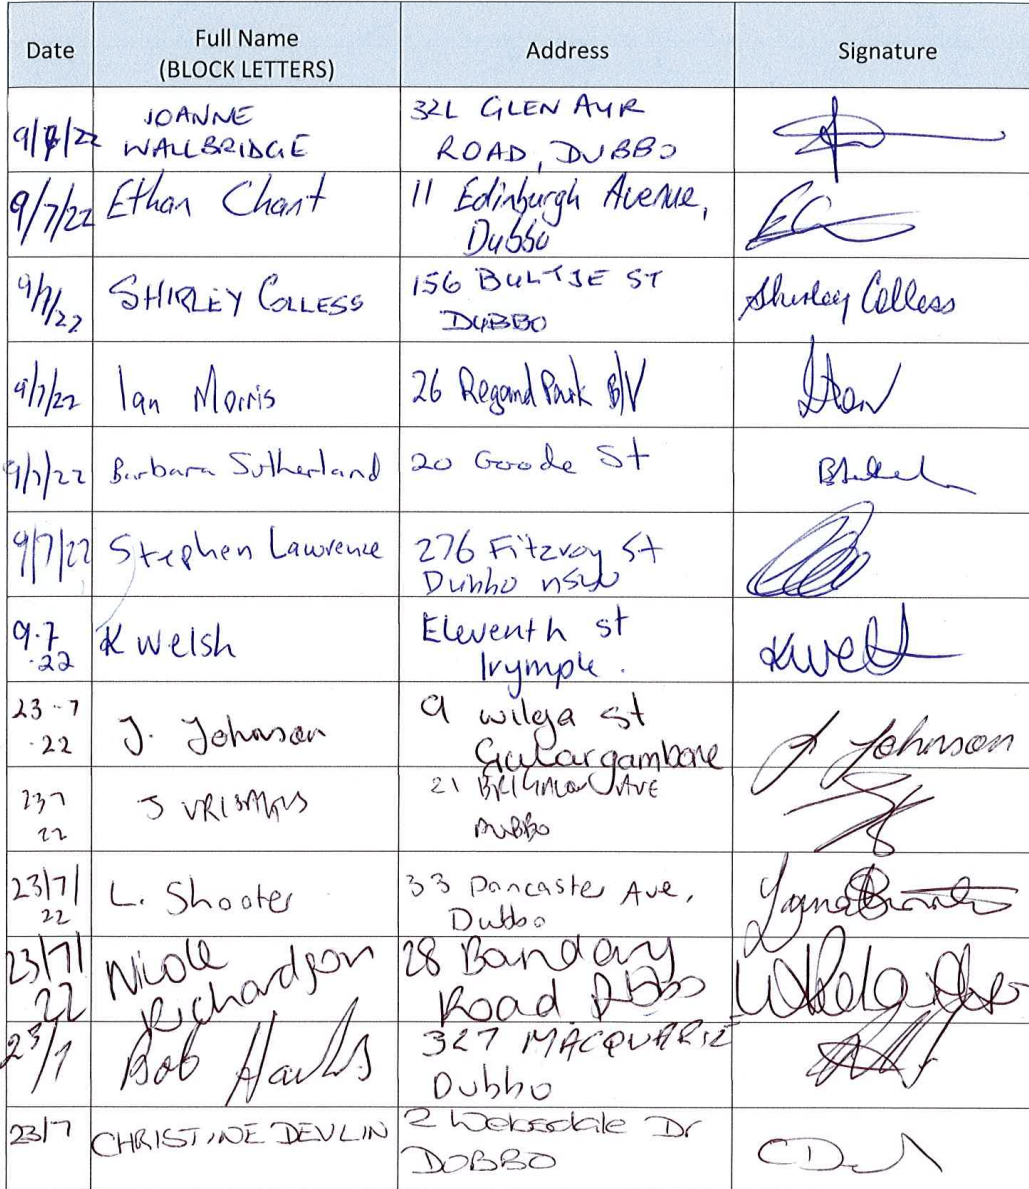 Date
Full Name
(BLOCK LETTERS)
Address
Signature
9/7/22
JOANNE
WALLBRIDGE
32L GLEN AYR
ROAD, DUBBO
9/7/22
Ethan Chant
11 Edinburgh Avenue,
Dubbo
9/7/22
SHIRLEY COLLESS
156 BULTJE ST
DUBBO
Shirley Colless
9/7/22
Ian Morris
26 Regand Park B/V
9/7/22
Barbara Sutherland
20 Goode St
9/7/22
Stephen Lawrence
276 Fitzroy St
Dubbo nsw
9.7
.22
K Welsh
Eleventh st
Irymple.
23-7
.22
J. Johnson
9 wilga st
Gulargambone
J Johnson
23 7
22
J
21 BRIGALOW AVE
DUBBO
23/7/
22
L. Shooter
33 Doncaster Ave,
Dubbo
23/7/
22
Nicole
Richardson
28
Road Dubbo
23/7
Bob
327 MACQUARIE
Dubbo
23/7
CHRISTINE DEVLIN
2 Dr
DUBBO